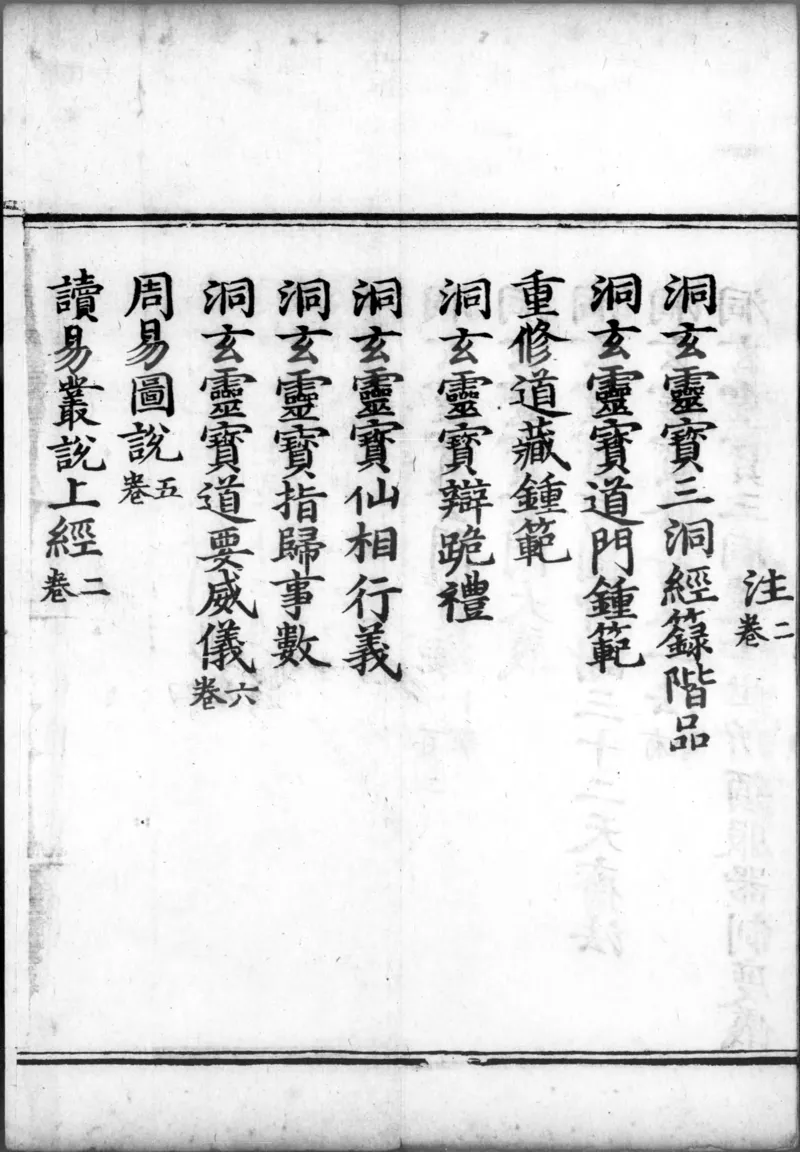 注二卷
洞玄靈寶三洞經籙階品
洞玄靈寶道門鍾範
重修道藏鍾範
洞玄靈寶辯跪禮
洞玄靈寶仙相行義
洞玄靈寶指歸事數
洞玄靈寶道要威儀六卷
周易圖說五卷
讀易叢說上經二卷